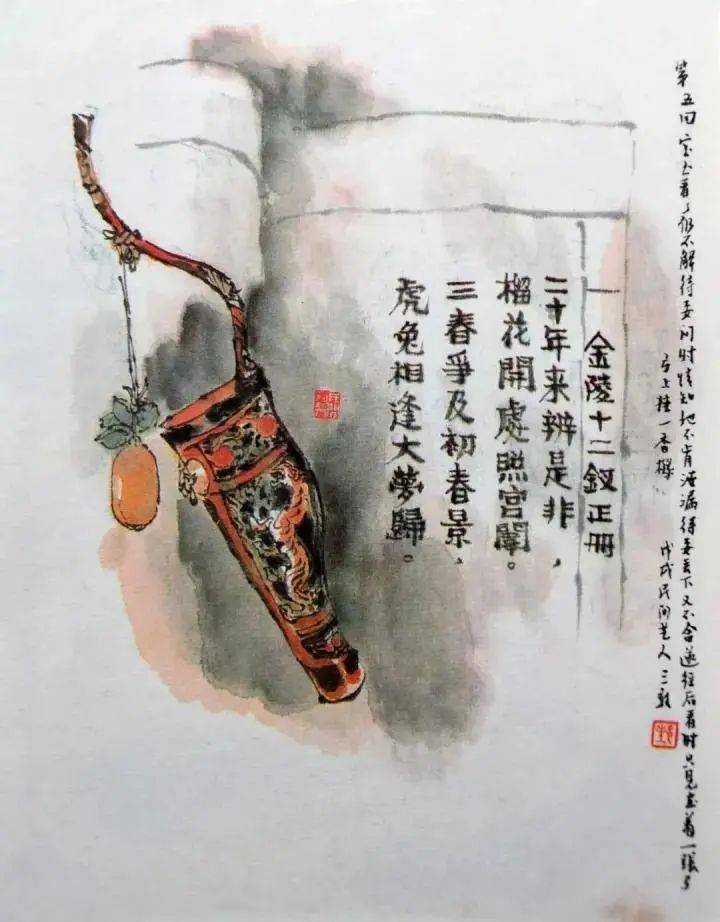 第五回 宝玉看了仍不解待要问时情知他不肯泄漏待要丢下又不舍遂往后看时只见画着一张弓
弓上挂一香橼 戊戌民间艺人三
一 金陵十二釵正册
二十年来辨是非，
榴花開處照宮闈。
三春爭及初春景，
虎兔相逢大夢歸。